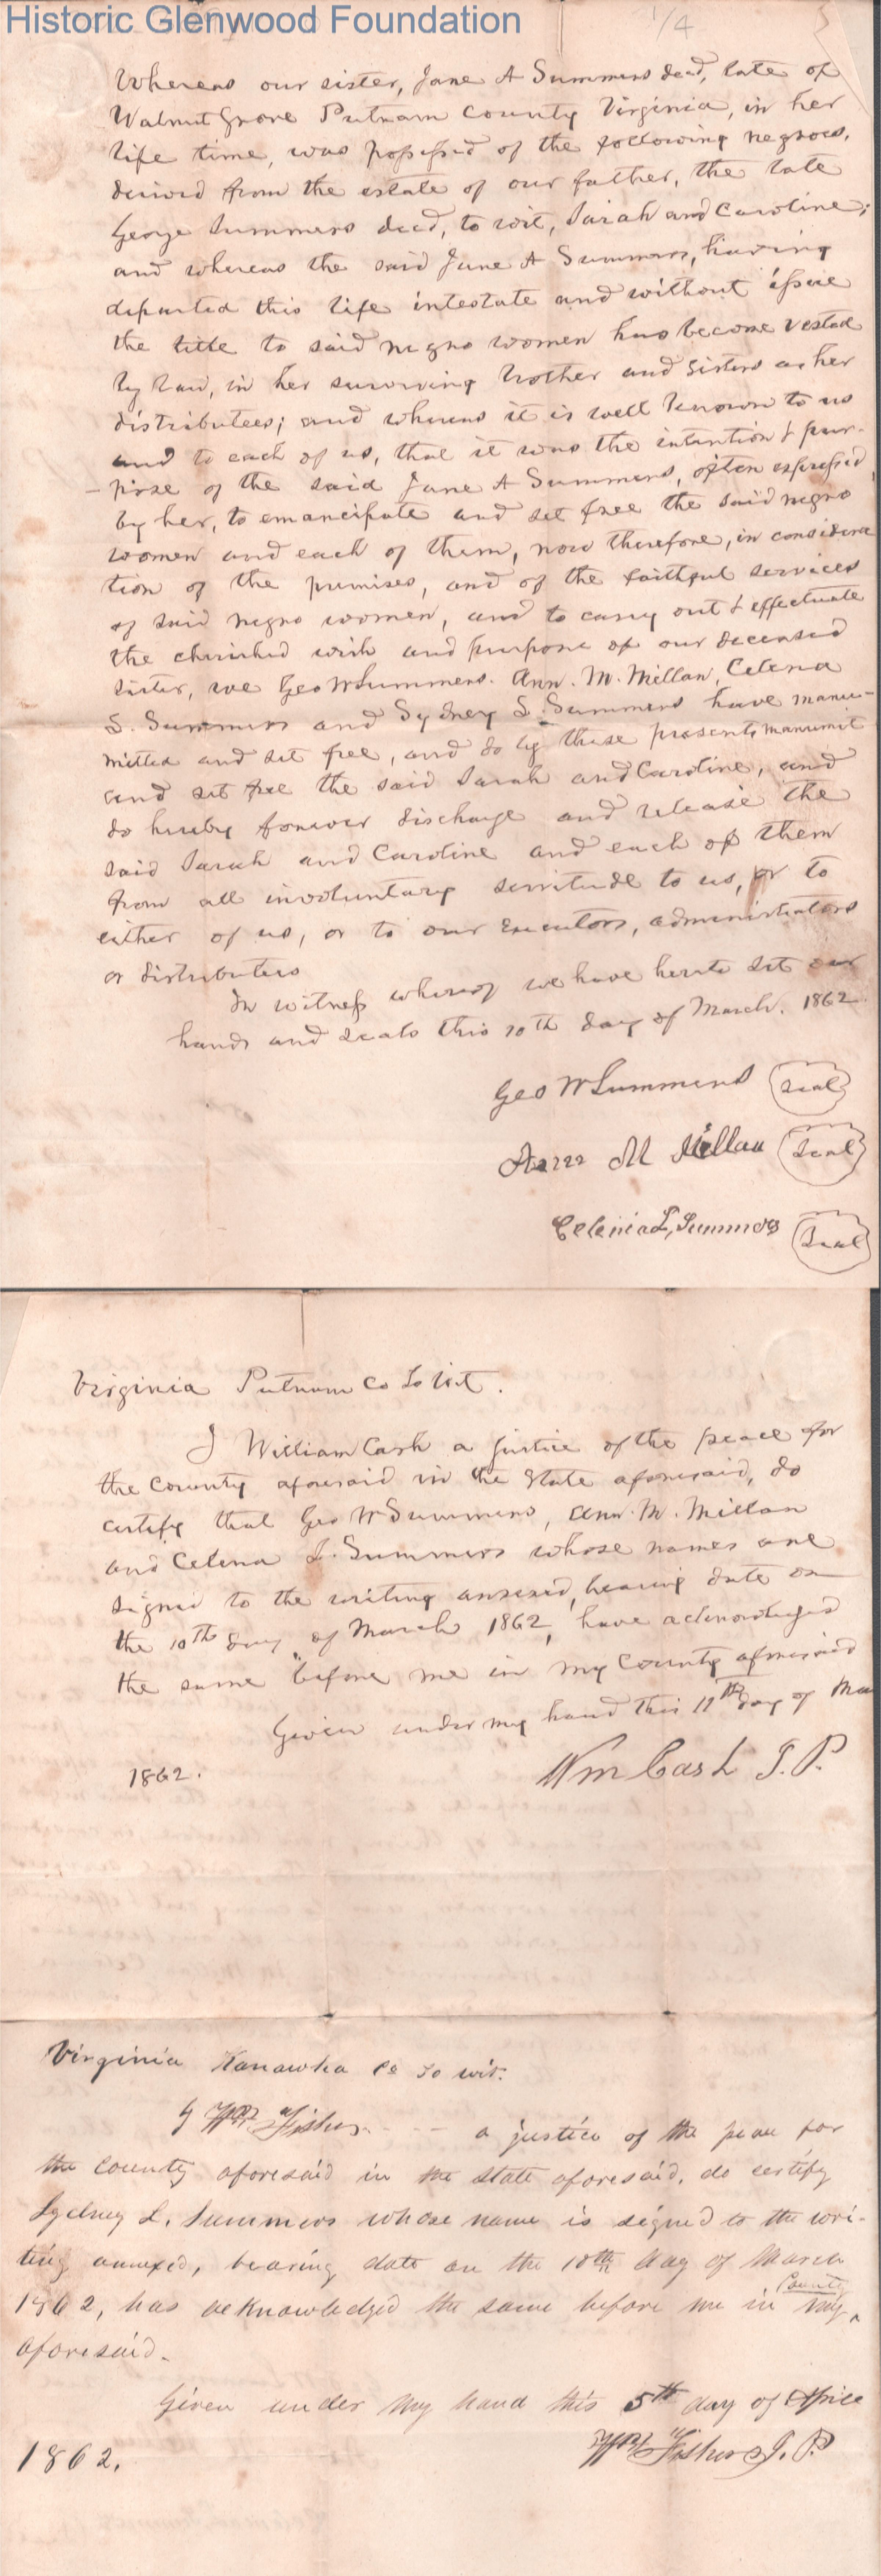 Historic Glenwood Foundation
1/4
Whereas our sister, Jane A Summers decd, late of
Walnut Grove Putnam County Virginia, in her
life time, was possessed of the following negroes,
derived from the estate of our father, the late
George Summers decd, to wit, Sarah and Caroline;
and whereas the said Jane A Summers, having
departed this life intestate and without issue
the title to said negro women has become vested
by law, in her surviving brother and sisters as her
distributees; and whereas it is well known to us
and to each of us, that it was the intention & pur-
-pose of the said Jane A Summers, often expressed
by her, to emancipate and set free the said negro
women and each of them, now therefore, in considera
tion of the premises, and of the faithful services
of said negro women, and to carry out & effectuate
the cherished wish and purpose of our deceased
sister, we Geo W Summers. Ann. M. Millan, Celena
S. Summers and Sydney S. Summers have manu-
mitted and set free, and do by these presents manumit
and set free the said Sarah and Caroline, and
do hereby forever discharge and release the
said Sarah and Caroline and each of them
from all involuntary servitude to us, or to
either of us, or to our executors, administrators
or distributees
In witness whereof we have hereto set our
hands and seals this 10th day of March. 1862
Geo W Summers Seal
Ann M Millan Seal
Celenia L, Summers Seal
Virginia Putnam Co To Wit.
I William Cash a justice of the peace for
the County aforesaid in the State aforesaid, do
certify that Geo W Summers, Ann. M. Millan
and Celena L. Summers whose names are
signed to the writing annexed, bearing date on
the 10th day of March 1862, have acknowledged
the same before me in my County aforesaid
Given under my hand this 11th day of Ma
1862. Wm Cash J. P.
Virginia Kanawha Co To wit.
I Wm Fisher - - - a justice of the peace for
the County aforesaid in the state aforesaid, do certify
Sydney L. Summers whose name is signed to the wri-
ting annexed, bearing date on the 10th day of March
1862, has acknowledged the same before me in my County
aforesaid.
Given under my hand this 5th day of April
1862. Wm Fisher J. P.